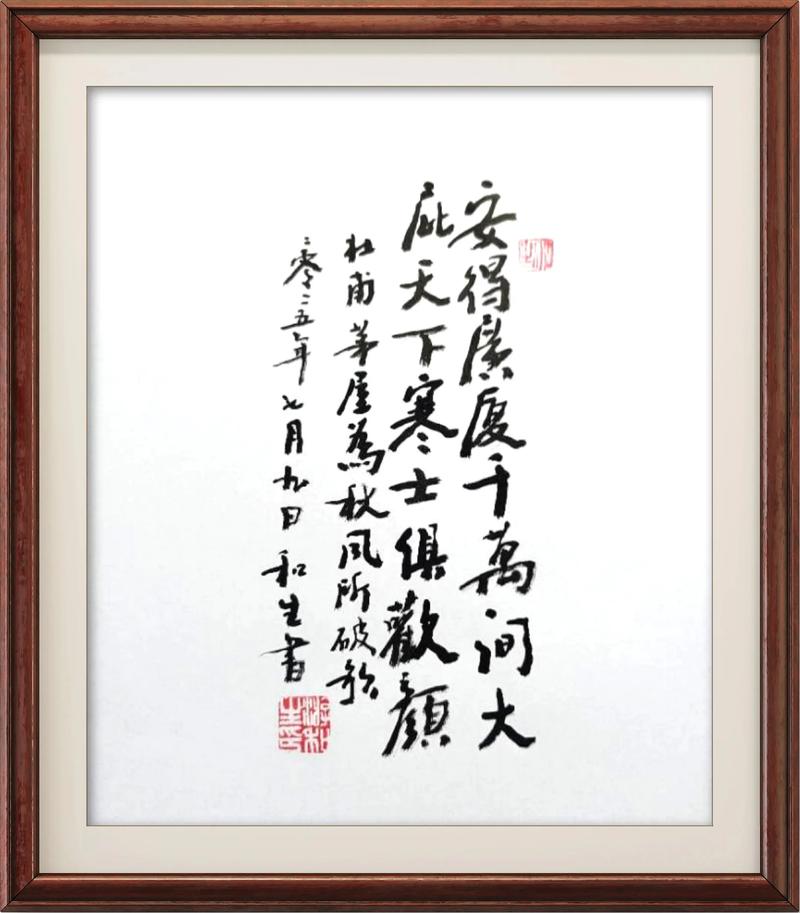 安得廣厦千萬间大
庇天下寒士俱歡顔
杜甫茅屋為秋风所破歌
二零二五年七月九日和生書
游和生印